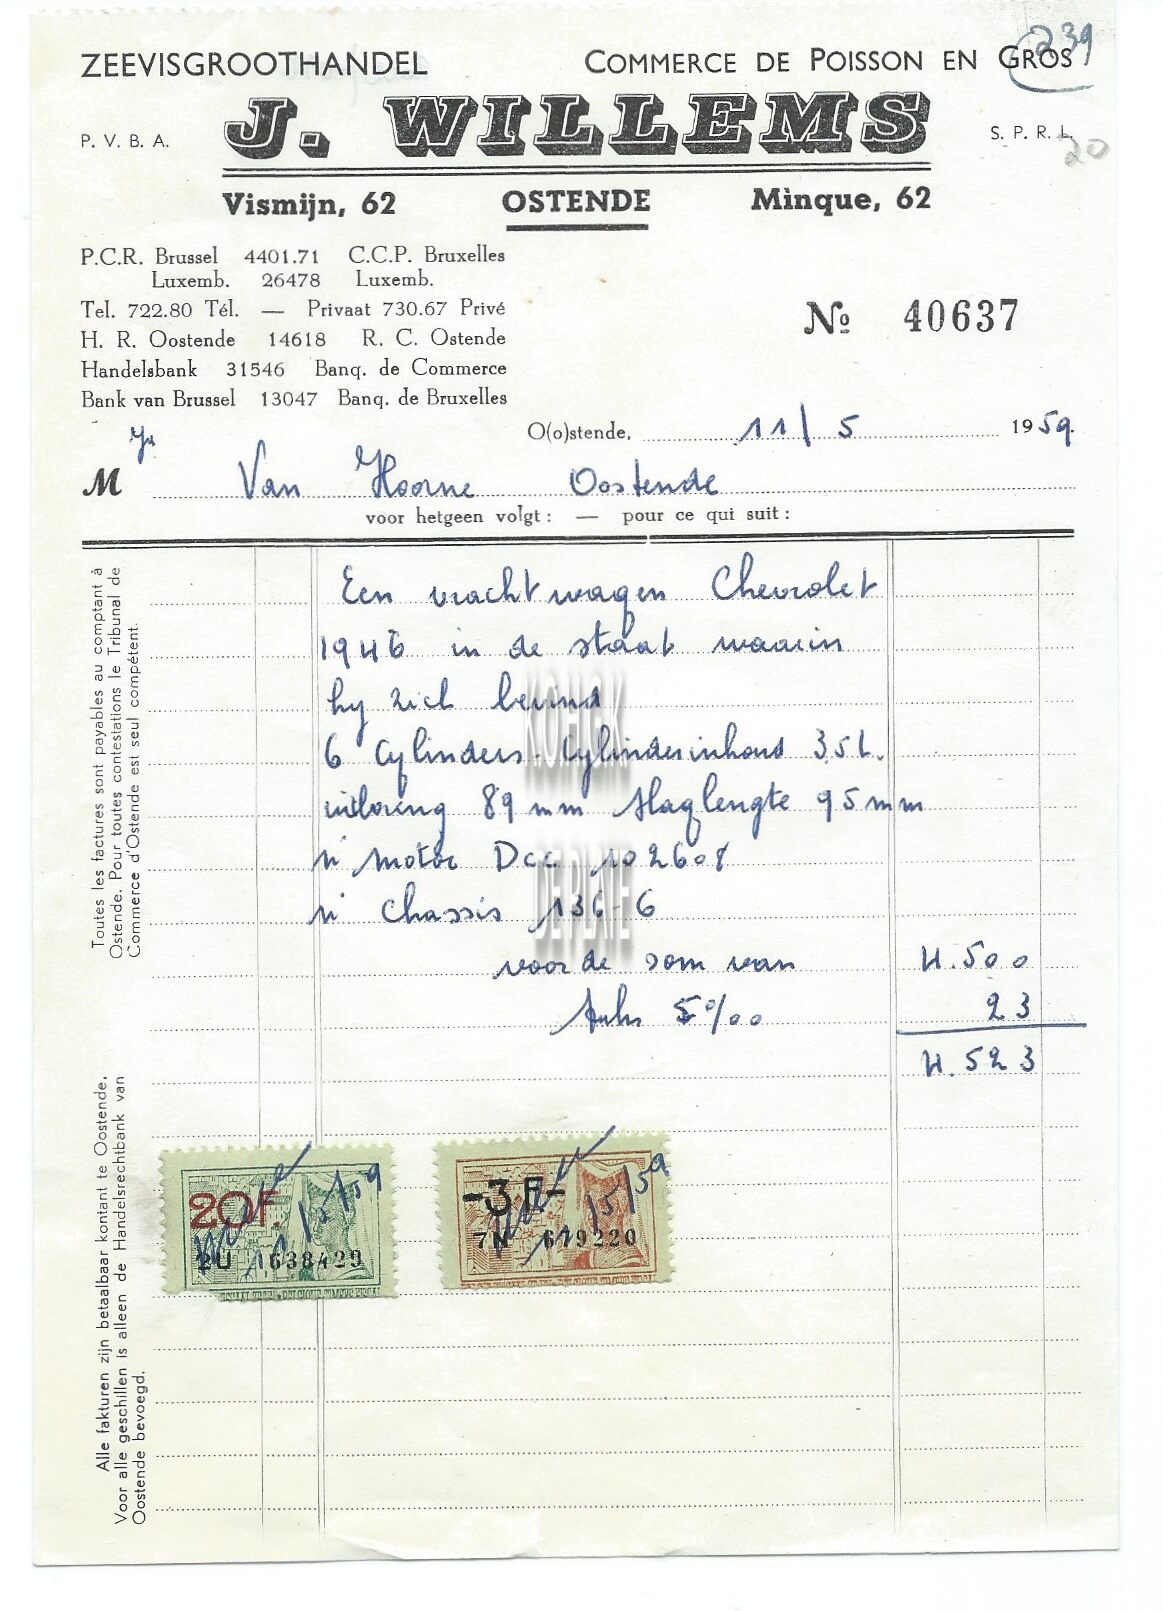 239
ZEEVISGROOTHANDEL COMMERCE DE POISSON EN GROS
P. V. B. A. J. WILLEMS S. P. R. L.
20
Vismijn, 62 OSTENDE Minque, 62
P.C.R. Brussel 4401.71 C.C.P. Bruxelles
Luxemb. 26478 Luxemb.
Tel. 722.80 Tél. — Privaat 730.67 Privé
H. R. Oostende 14618 R. C. Ostende
Handelsbank 31546 Banq. de Commerce
Bank van Brussel 13047 Banq. de Bruxelles
Nº 40637
O(o)stende, 11/5 1959.
M Van Hoorne Oostende
voor hetgeen volgt : — pour ce qui suit :
Een vrachtwagen Chevrolet
1946 in de staat waarin
hy zich bevind
6 Cylinders. Cylinderinhoud 3,5 L.
uitboring 89 mm slaglengte 95 mm
n° motor Dcc 102608
n° chassis 136-6
voor de som van 4.500
5%00 23
4.523
KOHIK
DE PLATE
20F.
2U 638429
11/5/59
-3F-
7N 679220
11/5/59
Toutes les factures sont payables au comptant à
Ostende. Pour toutes contestations le Tribunal de
Commerce d'Ostende est seul compétent.
Alle fakturen zijn betaalbaar kontant te Oostende.
Voor alle geschillen is alleen de Handelsrechtbank van
Oostende bevoegd.